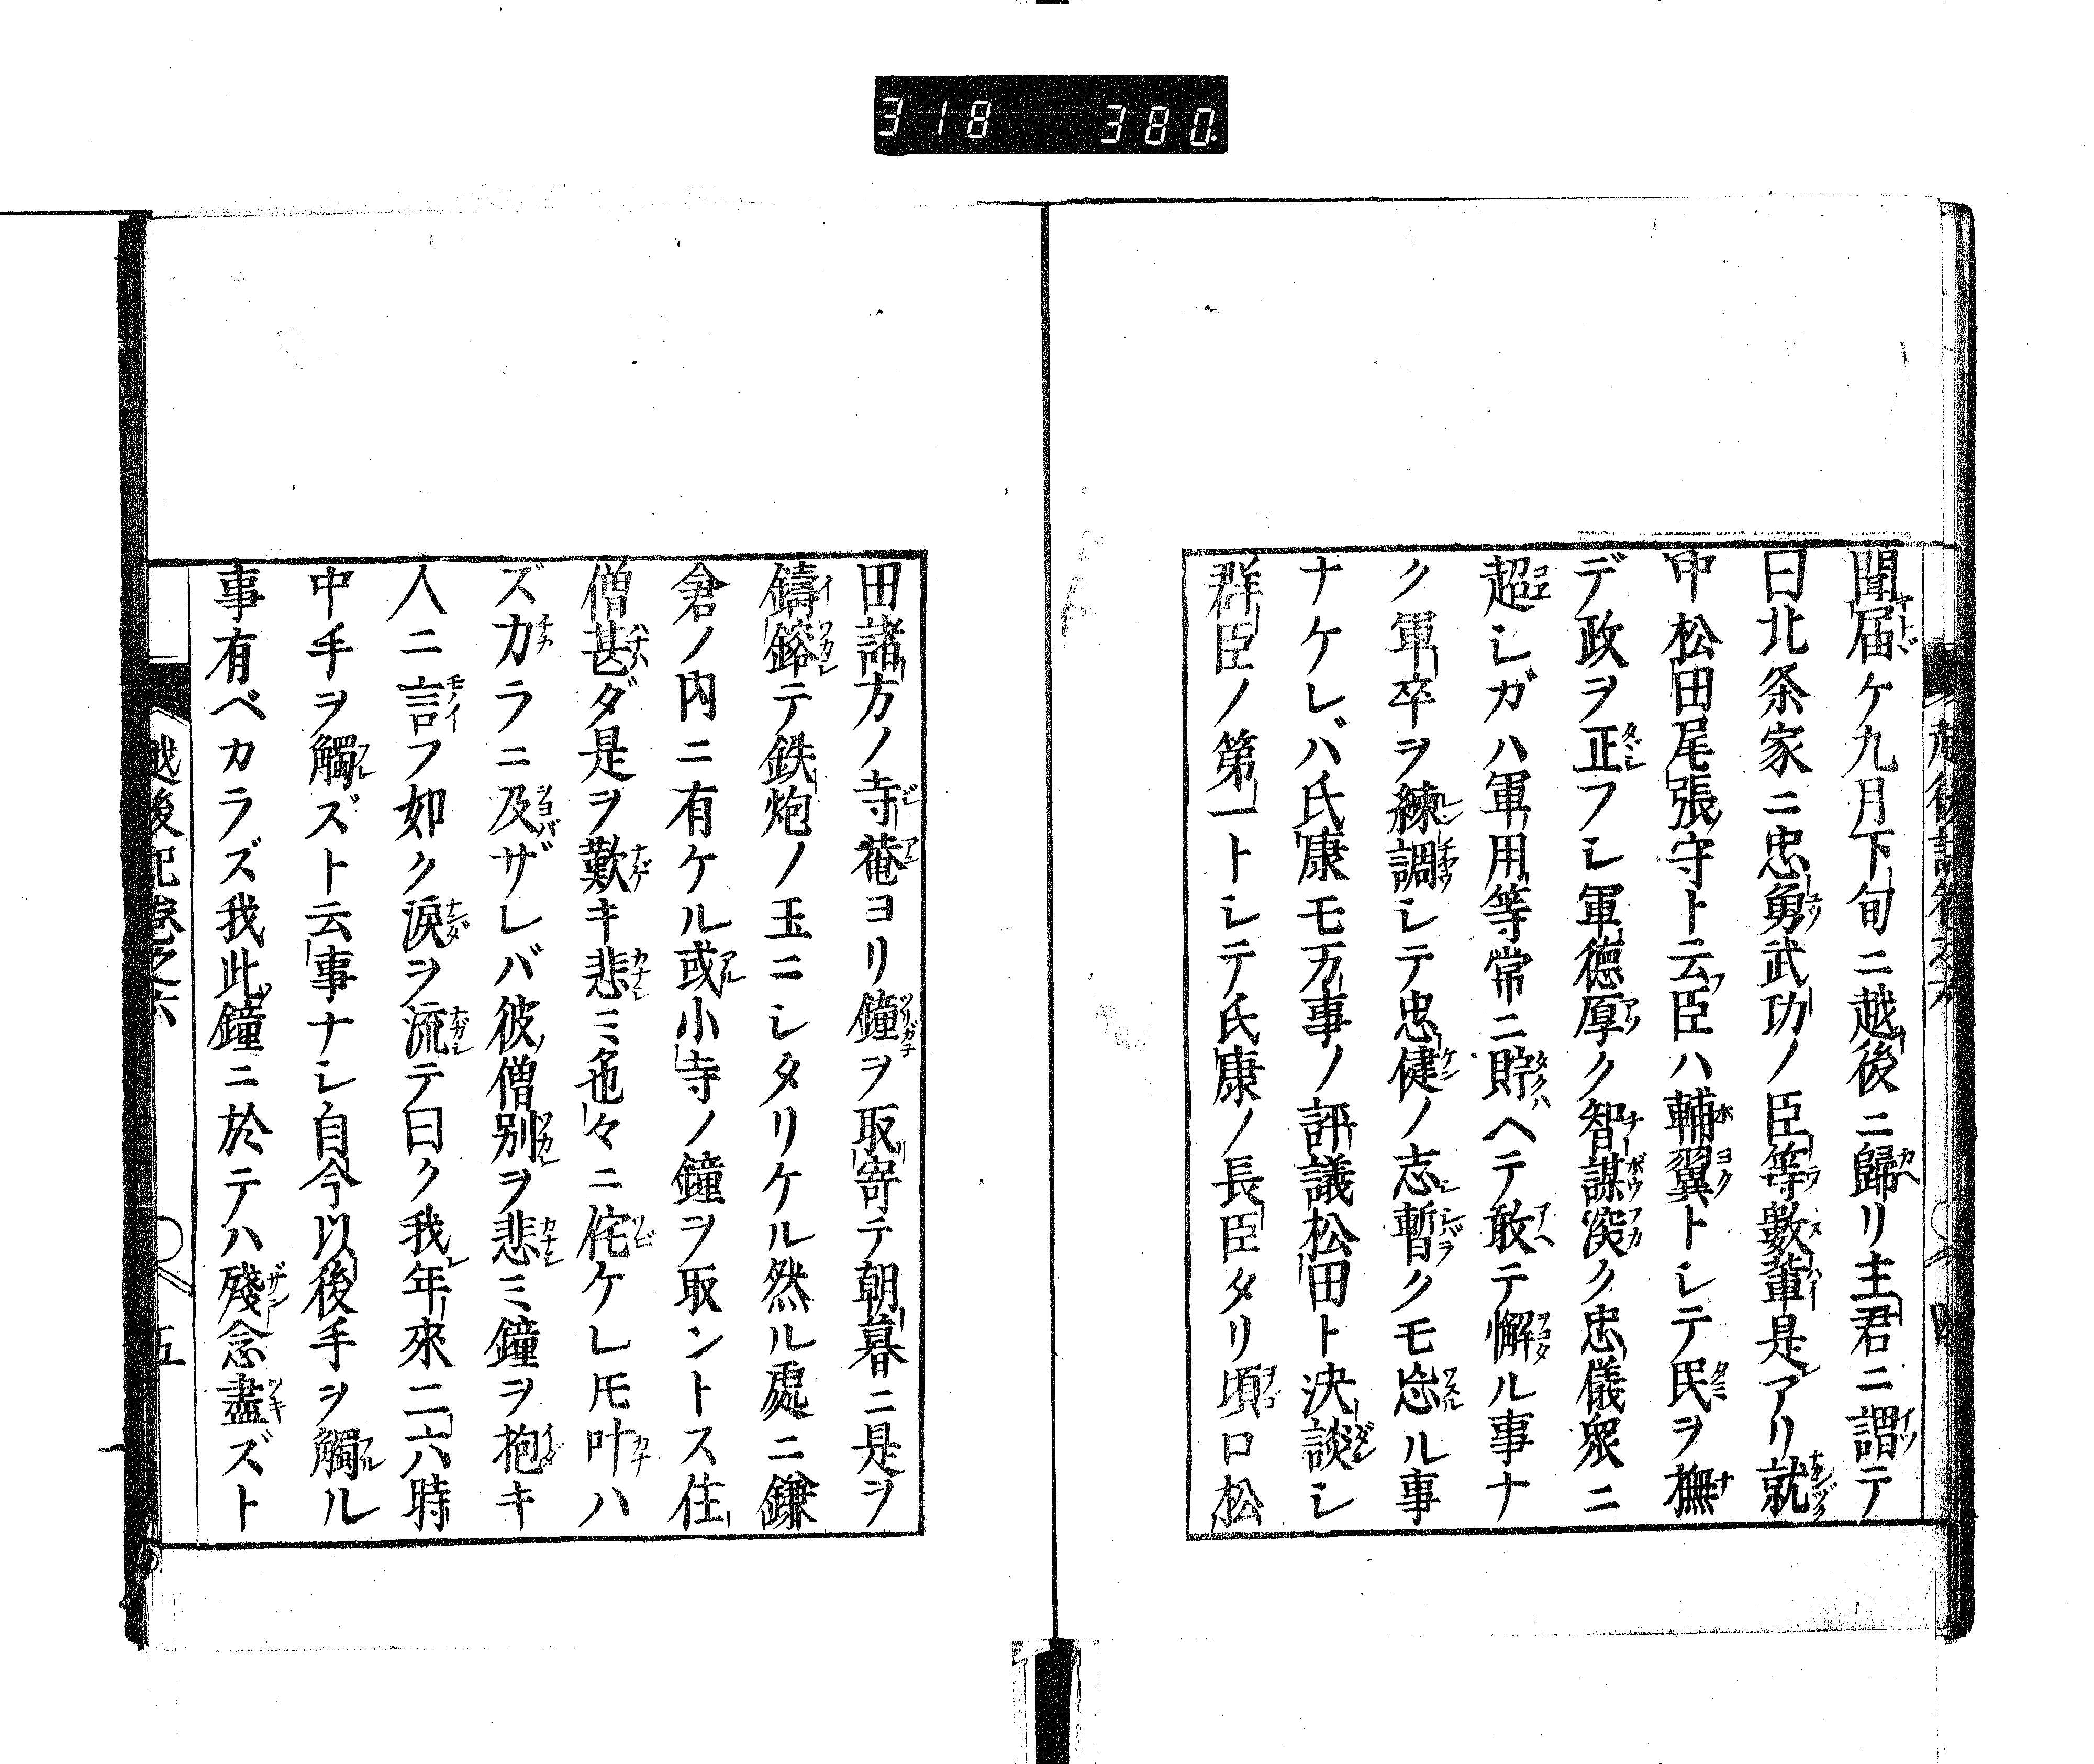 318 380
聞届ケ九月下旬ニ越後ニ歸リ主君ニ謂テ
曰北条家ニ忠勇武功ノ臣等數輩是アリ就
中松田尾張守ト云臣ハ輔翼トシテ民ヲ撫
デ政ヲ正フシ軍德厚ク智謀深ク忠儀衆ニ
超シガハ軍用等常ニ貯ヘテ敢テ懈ル事ナ
ク軍卒ヲ練調シテ忠健ノ志暫クモ忘ル事
ナケレバ氏康モ万事ノ評議松田ト決談シ
群臣ノ第一トシテ氏康ノ長臣タリ頃口松
田諸方ノ寺菴ヨリ鐘ヲ取寄テ朝暮ニ是ヲ
鑄鎔テ鉄炮ノ玉ニシタリケル然ル處ニ鎌
倉ノ内ニ有ケル或小寺ノ鐘ヲ取ントス住
僧甚ダ是ヲ歎キ悲ミ色々ニ侘ケレ𪜈叶ハ
ズ力ラニ及ザレバ彼僧別ヲ悲ミ鐘ヲ抱キ
人ニ言フ如ク淚ヲ流テ曰ク我年來二六時
中手ヲ觸ズト云事ナシ自今以後手ヲ觸ル
事有ベカラズ我此鐘ニ於テハ殘念盡ズト
越後記卷之六 五